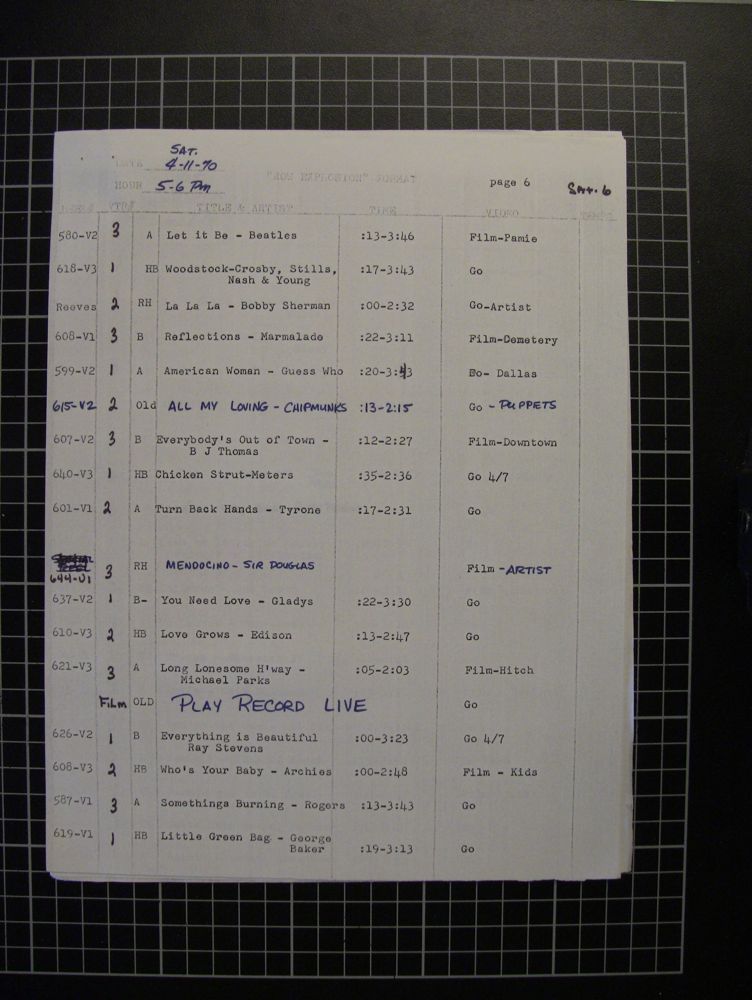 SAT.
DATE 4-11-70
"NOW EXPLOSION" FORMAT page 6 SAT. 6
HOUR 5-6 Pm
VTR# TITLE & ARTIST TIME VIDEO
580-V2 3 A Let it Be - Beatles :13-3:46 Film-Pamie
618-V3 1 HB Woodstock-Crosby, Stills, :17-3:43 Go
Nash & Young
Reeves 2 RH La La La - Bobby Sherman :00-2:32 Go-Artist
608-V1 3 B Reflections - Marmalade :22-3:11 Film-Cemetery
599-V2 1 A American Woman - Guess Who :20-3:43 Go- Dallas
615-V2 2 Old ALL MY LOVING - CHIPMUNKS :13-2:15 Go - PUPPETS
607-V2 3 B Everybody's Out of Town - :12-2:27 Film-Downtown
B J Thomas
640-V3 1 HB Chicken Strut-Meters :35-2:36 Go 4/7
601-V1 2 A Turn Back Hands - Tyrone :17-2:31 Go
644-V1 3 RH MENDOCINO - SIR DOUGLAS Film - ARTIST
637-V2 1 B- You Need Love - Gladys :22-3:30 Go
610-V3 2 HB Love Grows - Edison :13-2:47 Go
621-V3 3 A Long Lonesome H'way - :05-2:03 Film-Hitch
Michael Parks
FiLm OLD PLAY RECORD LIVE Go
626-V2 1 B Everything is Beautiful :00-3:23 Go 4/7
Ray Stevens
608-V3 2 HB Who's Your Baby - Archies :00-2:48 Film - Kids
587-V1 3 A Somethings Burning - Rogers :13-3:43 Go
619-V1 1 HB Little Green Bag - George
Baker :19-3:13 Go